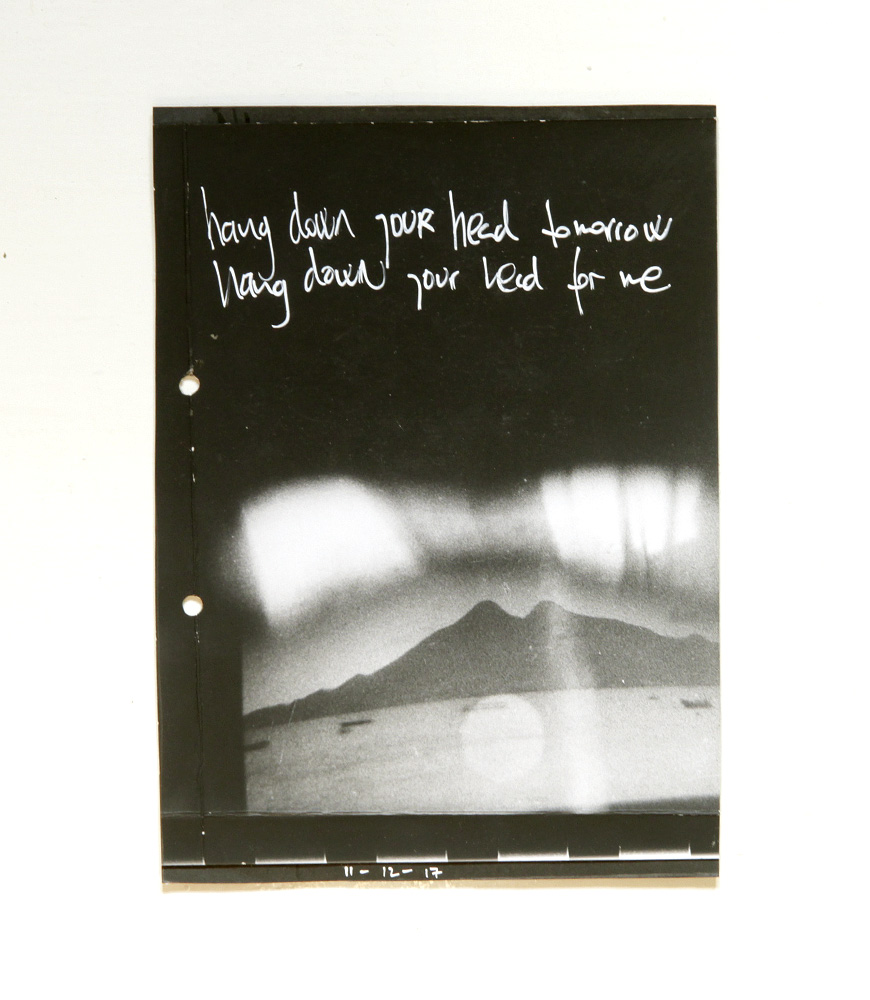 hang down your head tomorrow
hang down your head for me
11-12-17